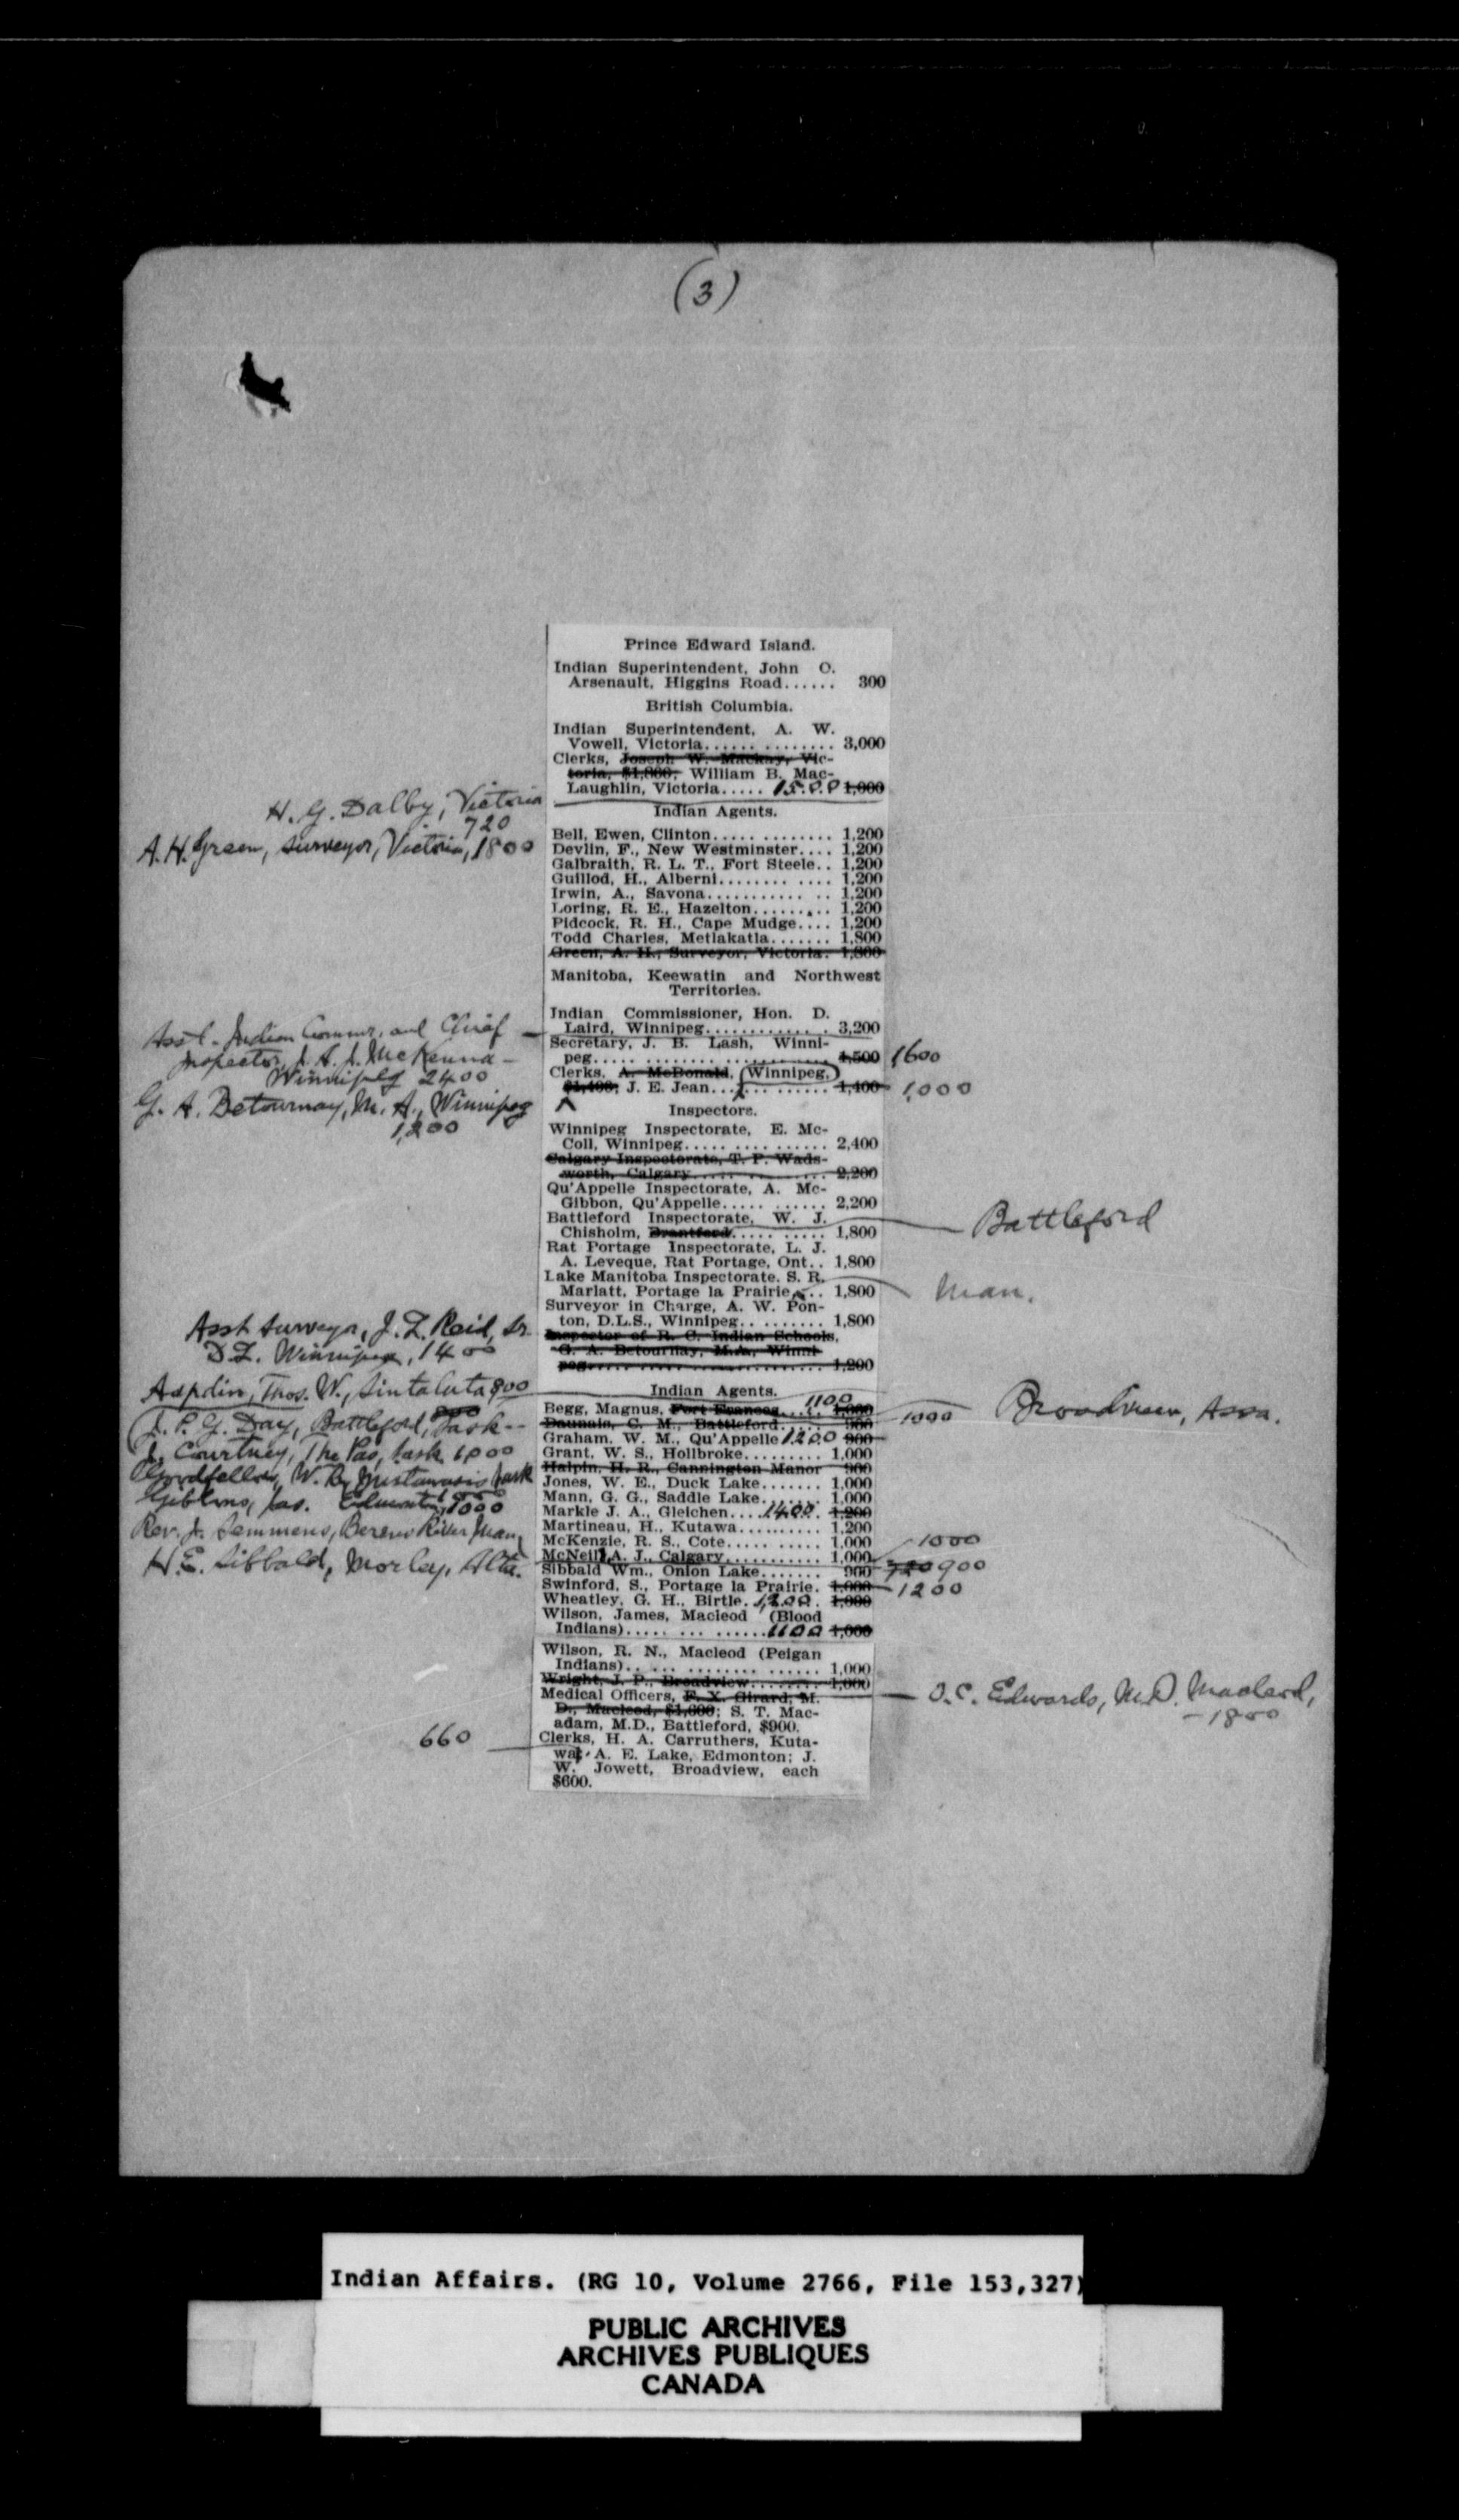 (3)
Prince Edward Island.
Indian Superintendent, John O.
Arsenault, Higgins Road...... 300
British Columbia.
Indian Superintendent, A. W.
Vowell, Victoria...... ........ 3,000
Clerks, Joseph W. Mackay, Vic-
toria, $1,800; William B. Mac-
Laughlin, Victoria..... 1500 1,000
H. G. Dalby, Victoria
720
A. H. Green, surveyor, Victoria, 1800
Indian Agents.
Bell, Ewen, Clinton..... ........ 1,200
Devlin, F., New Westminster.... 1,200
Galbraith, R. L. T., Fort Steele.. 1,200
Guillod, H., Alberni........ .... 1,200
Irwin, A., Savona........... .. 1,200
Loring, R. E., Hazelton......... 1,200
Pidcock, R. H., Cape Mudge.... 1,200
Todd Charles, Metlakatla....... 1,800
Green, A. H., Surveyor, Victoria. 1,800
Manitoba, Keewatin and Northwest
Territories.
Indian Commissioner, Hon. D.
Laird, Winnipeg............ . 3,200
Asst. Indian Commr. and Chief
Inspector, J. A. J. McKenna -
Winnipeg 2400
Secretary, J. B. Lash, Winni-
peg..... ........ ............ 1,500 1600
Clerks, A. McDonald, (Winnipeg,)
$1,400; J. E. Jean.... ......... 1,100 1,000
G. A. Betournay, M. A., Winnipeg
1,200
Inspectors.
Winnipeg Inspectorate, E. Mc-
Coll, Winnipeg..... .......... 2,400
Calgary Inspectorate, T. P. Wads-
worth, Calgary................ 2,200
Qu'Appelle Inspectorate, A. Mc-
Gibbon, Qu'Appelle..... ...... 2,200
Battleford Inspectorate, W. J.
Chisholm, Brantford..... ..... 1,800
Battleford
Rat Portage Inspectorate, L. J.
A. Leveque, Rat Portage, Ont.. 1,800
Lake Manitoba Inspectorate. S. R.
Marlatt, Portage la Prairie.... 1,800
Man.
Surveyor in Charge, A. W. Pon-
ton, D.L.S., Winnipeg......... 1,800
Asst surveyor, J. L. Reid,
D. L. Winnipeg, 1400
Inspector of R. C. Indian Schools,
G. A. Betournay, M.A., Winni-
peg........................... 1,200
Indian Agents.
Aspdin, Thos. W., Sintaluta 900
Begg, Magnus, Fort Frances.... 1100 1,000
1000 Broadview, Assa.
Daunais, C. M., Battleford..... 900
J. P. G. Day, Battleford, Sask--
Graham, W. M., Qu'Appelle 1200 900
Grant, W. S., Hollbroke......... 1,000
J. Courtney, The Pas, Sask 1,000
Halpin, H. R., Cannington Manor 900
Goodfellow, W. B. Mistawasis Sask
Jones, W. E., Duck Lake....... 1,000
Mann, G. G., Saddle Lake....... 1,000
Gibbons, Jas. Edmonton, 1000
Markle J. A., Gleichen.... 1400. 1,200
Martineau, H., Kutawa.......... 1,200
Rev. J. Semmens, Berens River Man,
McKenzie, R. S., Cote..... ..... 1,000
McNeill A. J., Calgary........... 1,000 1000
H. E. Sibbald, Morley, Alta.
Sibbald Wm., Onion Lake....... 900 720 900
Swinford, S., Portage la Prairie. 1,000 1200
Wheatley, G. H., Birtle. 1,200. 1,000
Wilson, James, Macleod (Blood
Indians)..... ... ...... 1100 1,000
Wilson, R. N., Macleod (Peigan
Indians).. ... ........ ...... 1,000
Wright, J. P., Broadview........ 1,000
Medical Officers, F. X. Girard, M.
D., Macleod, $1,600; S. T. Mac-
adam, M.D., Battleford, $900.
O. C. Edwards, M.D. Macleod,
- 1800
Clerks, H. A. Carruthers, Kuta-
wa; A. E. Lake, Edmonton; J.
W. Jowett, Broadview, each
$600.
660
Indian Affairs. (RG 10, Volume 2766, File 153,327)
PUBLIC ARCHIVES
ARCHIVES PUBLIQUES
CANADA